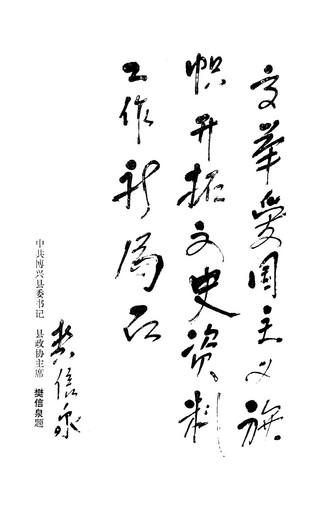 高举爱国主义旗
帜开拓文史资料
工作新局面
樊信泉
中共博兴县委书记 县政协主席 樊信泉题